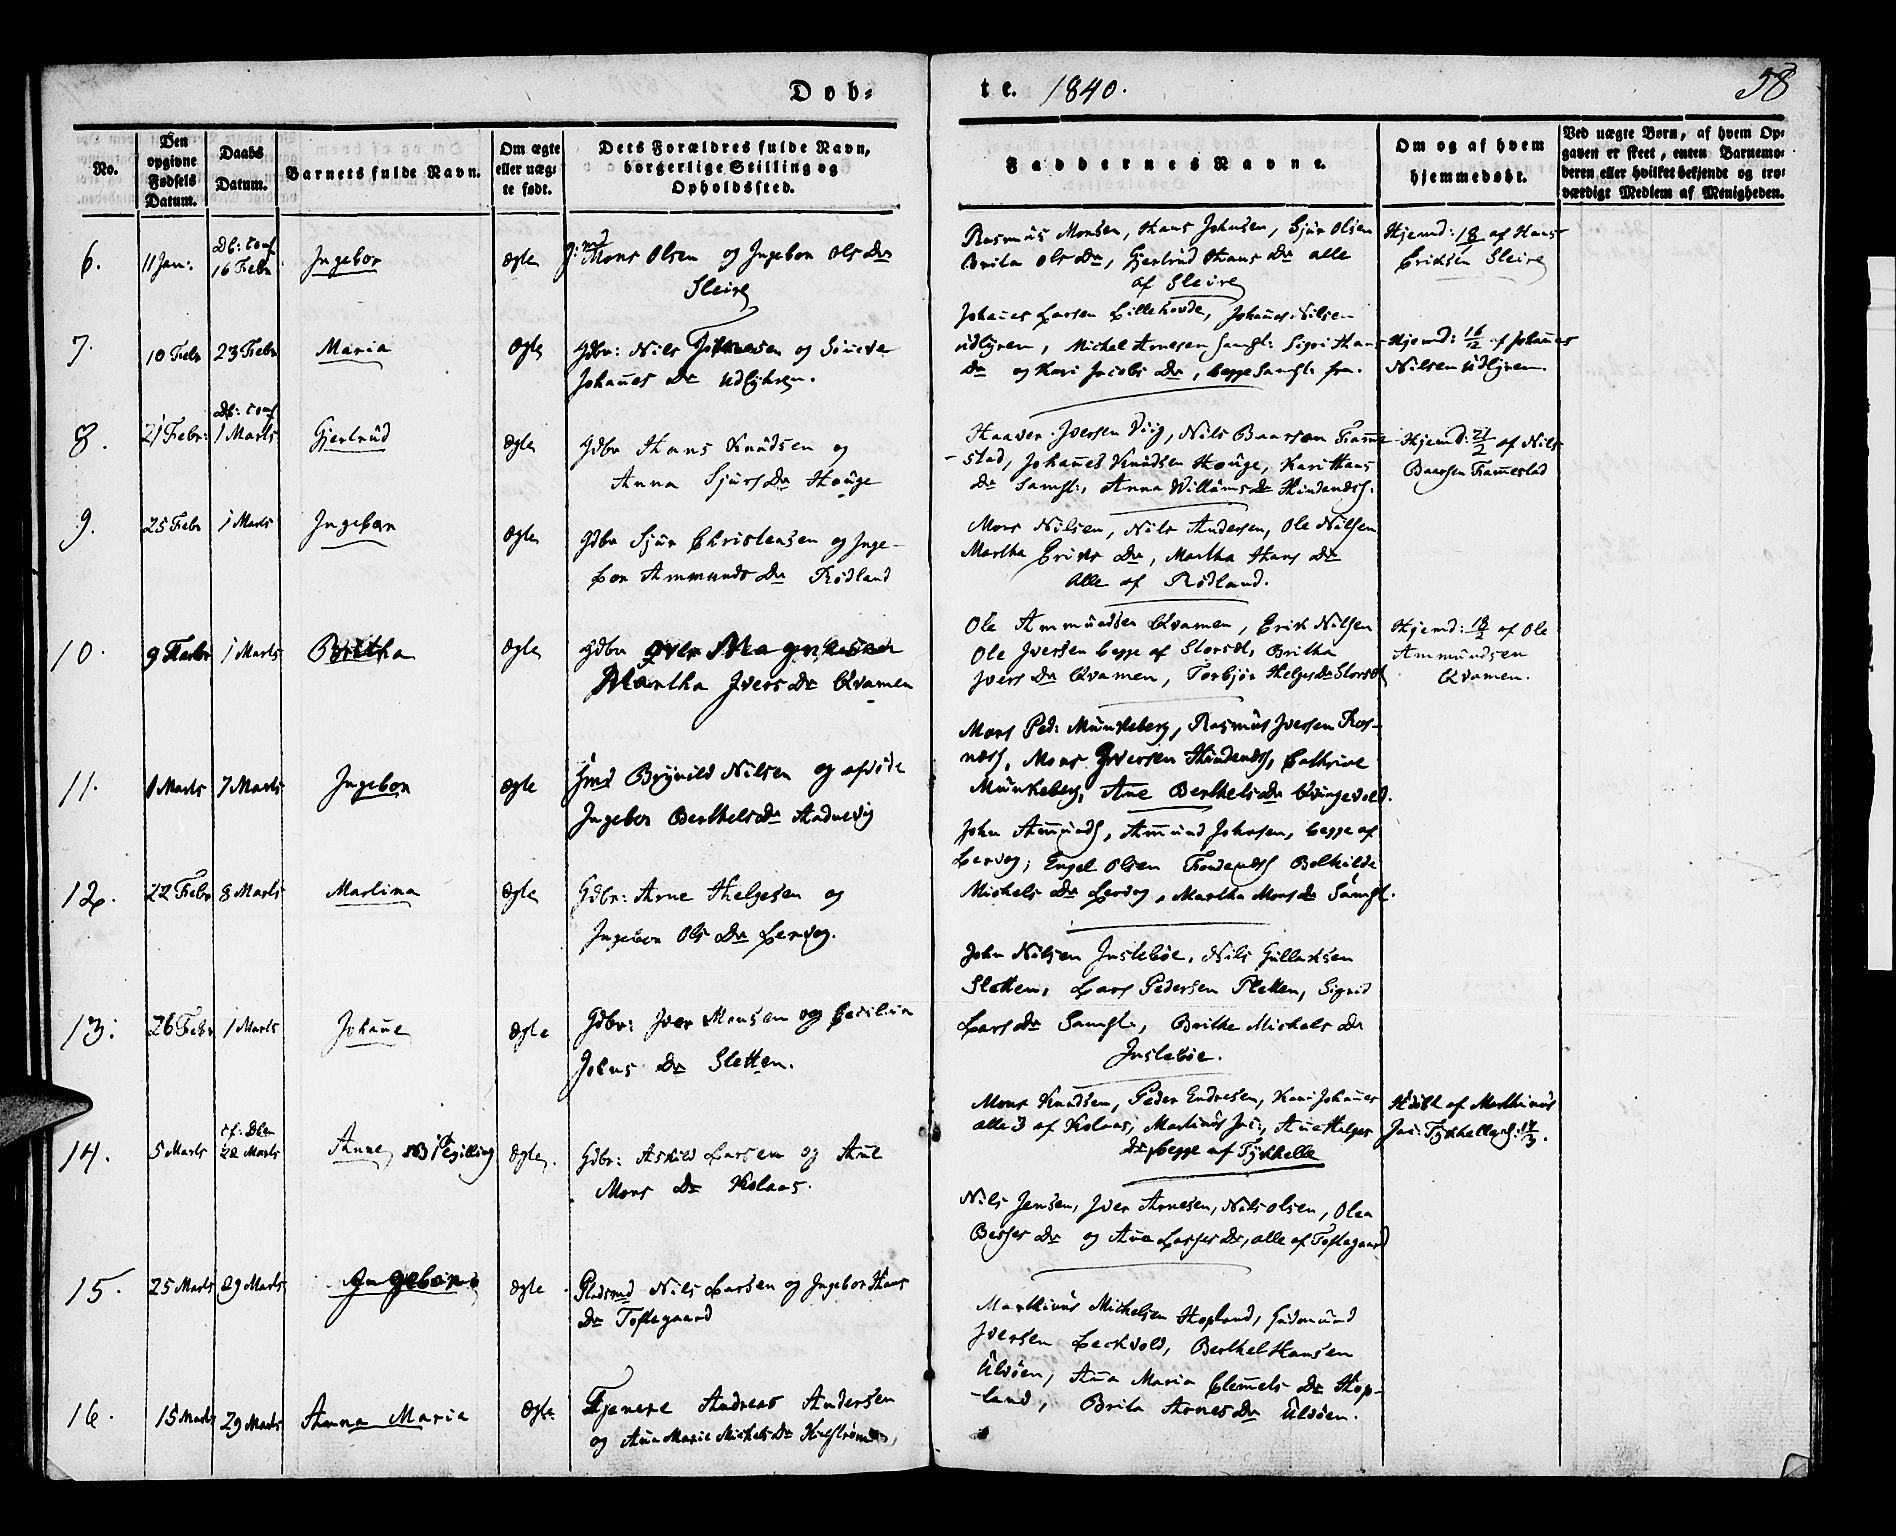 Døb-
te. 1840.
58
No.
Den opgivne Fødsels Datum.
Daabs Datum.
Barnets fulde Navn.
Om ægte eller uægte født.
Dets Forældres fulde Navn, borgerlige Stilling og Opholdssted.
Faddernes Navne.
Om og af hvem hjemmedøbt.
Ved uægte Børn, af hvem Opgaven er skeet, enten Barnemoderen eller hvilket bekjendt og troværdigt Medlem af Menigheden.
6.
11 Jan:
Db: conf
16 Febr
Ingebor
Ægte
Mons Olsen og Ingebor Ols Dr
Sleire
Rasmus Monsen, Hans Johnsen, Sjur Olsen
Brita Ols Dr, Gjertrud Hans Dr alle
af Sleire
Hjemd: 18 af Hans
Ericksen Sleire
7.
10 Febr
23 Febr
Maria
Ægte
Gdbr: Nils Johnesen og Sineva
Johanes Dr Udlyhren.
Johanes Larsen Lillehovde, Johanes Nilsen
Udlyren, Michel Arnesen Samst: Sigri Hans
Dr og Kari Jacobs Dr, begge Samst: fra.
Hjemd: 16/2 af Johanes
Nilsen Udlyren.
8.
21 Febr:
Db: conf
1 Marts
Gjertrud
Ægte
Gdbr Hans Knudsen og
Anna Sjurs Dr Houge
Haaver Iversen Viig, Nils Baarsen Framme
-stad, Johanes Knudsen Houge, Kari Hans
Dr Samst:, Anna Willums Dr
Hjemd: 21/2 af Nils
Baarsen Framestad
9.
25 Febr
1 Marts
Ingebor
Ægte
Gdbr Sjur Christensen og Inge-
bor Ammunds Dr Rødland
Mons Nilsen, Nils Andersen, Ole Nilsen
Martha Eriks Dr, Martha Hans Dr
Alle af Rødland.
10.
9 Febr
1 Marts
Britha
Ægte
Gdbr Iver Magnesen
Martha Ivers Dr Qvamen
Ole Ammundsen Qvamen, Erik Nilsen
Ole Iversen begge af Storset, Britha
Ivers Dr Qvamen, Torbjør Helges Dr Storset
Hjemd: 18/2 af Ole
Ammundsen
Qvamen.
11.
1 Marts
7 Marts
Ingebor
Ægte
Gmd Brynild Nilsen og afdøde
Ingebor Berthels Dr Andvevig
Mons Ped: Munkeberg, Rasmus Iversen Ros-
Mons Iversen Cathrine
Munkeberg, Ane Berthels Dr Qvingevold.
12.
22 Febr
8 Marts
Martina
Ægte
Gdbr: Arne Helgesen og
Ingebor Ols Dr Lervog.
John Amunds, Amund Johnsen, begge af
Lervog; Engel Olsen Bolhilde
Michels Dr Lervog, Martha Mons Dr Samst.
13.
26 Febr
1 Marts
Johane
Ægte
Gdbr: Iver Monsen og Cecilia
Johns Dr Sletten.
John Nilsen Justebøe, Nils Gullaksen
Sletten, Lars Pedersen Sletten, Sigrid
Lars Dr Samst:, Brithe Michels Dr
Justebøe.
14.
5 Marts
cf: Dben
22 Marts
Anne
Ægte.
Gdbr: Askild Larsen og Ane
Mons Dr Kolaas.
Mons Knudsen, Peder Endresen, Kari Johanes
alle 3 af Kolaas, Martinus Jac:, Ane Helges
Dr, begge af Tykhelle
Hdøbt af Marthinus
Jac: 14/3.
15.
25 Marts
29 Marts
Ingebor
Ægte
Pladsmd Nils Larsen og Ingebor Hans
Dr Toftegaard
Nils Jensen, Iver Arnesen, Nils Olsen, Olea
Besses Dr og Ane Lasses Dr, alle af Toftegaard
16.
15 Marts
29 Marts
Anna Marie
Ægte
Tjenere Andreas Andersen
og Ana Marie Michels Dr
Marthinus Michelsen Hopland, Gudmund
Iversen Leckvold, Berthel Hansen
Uldøen, Ana Maria Clemets Dr Hop-
-land, Brita Arnes Dr Uldøen.